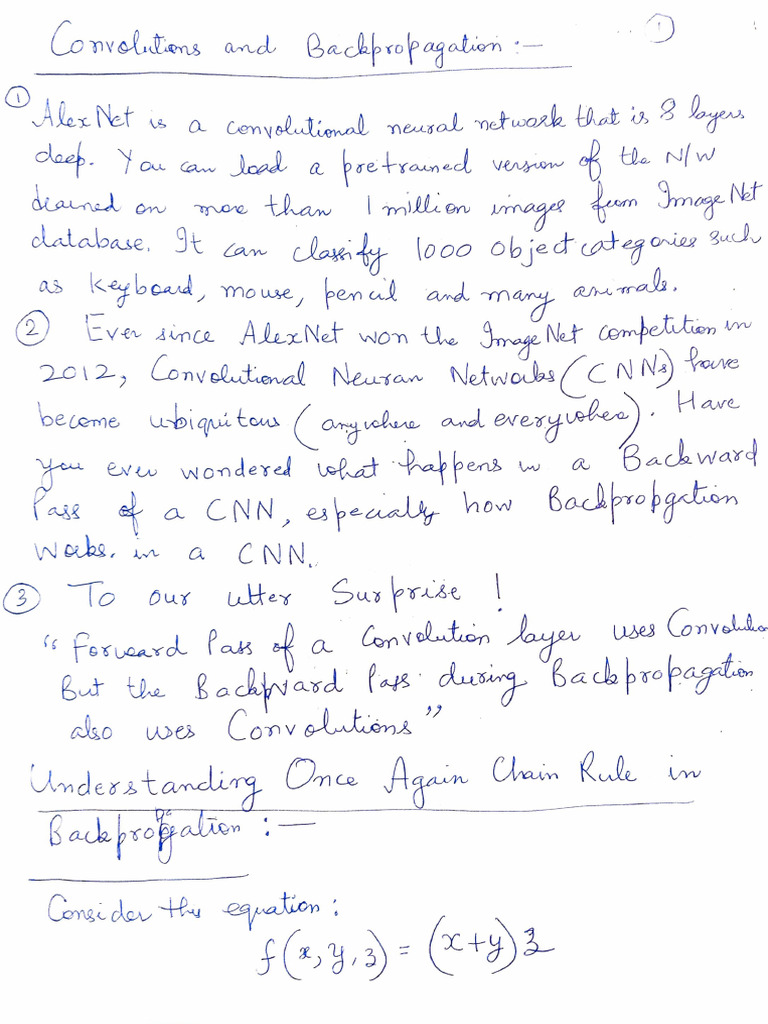 Convolutions and Backpropagation :—
1
① AlexNet is a convolutional neural network that is 8 layers
deep. You can load a pretrained version of the N/W
trained on more than 1 million images from ImageNet
database. It can classify 1000 object categories such
as keyboard, mouse, pencil and many animals.
② Ever since AlexNet won the ImageNet competition in
2012, Convolutional Neuran Networks (CNNs) have
become ubiquitous (anywhere and everywhere). Have
you ever wondered what happens in a Backward
Pass of a CNN, especially how Backpropgation
Works. in a CNN.
③ To our utter Surprise !
"Forward Pass of a Convolution layer uses Convolution
But the Backward Pass during Backpropagation
also uses Convolutions"
Understanding Once Again Chain Rule in
Backpropagation :—
Consider this equation:
f(x, y, z) = (x+y)z